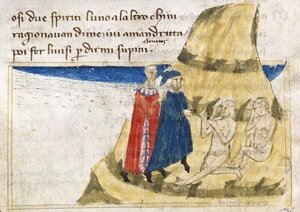 osi due spiriti luno alaltro chini
ragionauan dime iui amandritta
poi fer liuisi p dirmi supini